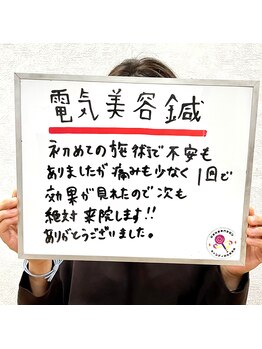 電気美容鍼
初めての施術で不安も
ありましたが痛みも少なく1回で
効果が見れたので次も
絶対来院します!!
ありがとうございました。